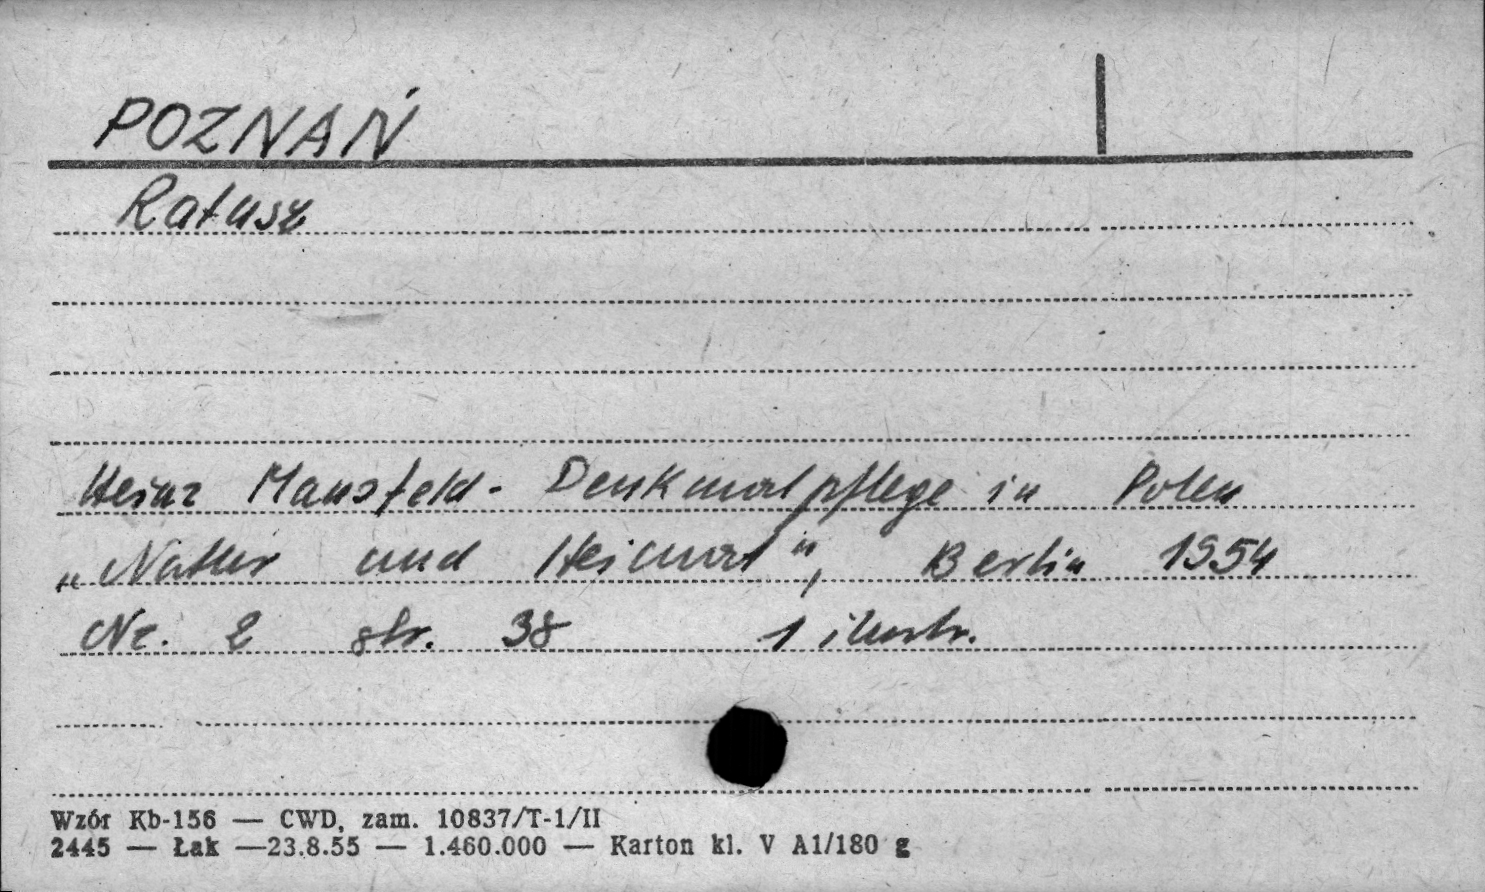 POZNAŃ
Ratusz
Heinz Mansfeld - Denkmalpflege in Polen
„Natur und Heimat”, Berlin 1954
Nr. 2 str. 38 1 ilustr.
Wzór Kb-156 — CWD, zam. 10837/T-1/II
2445 — Łak —23.8.55 — 1.460.000 — Karton kl. V A1/180 g